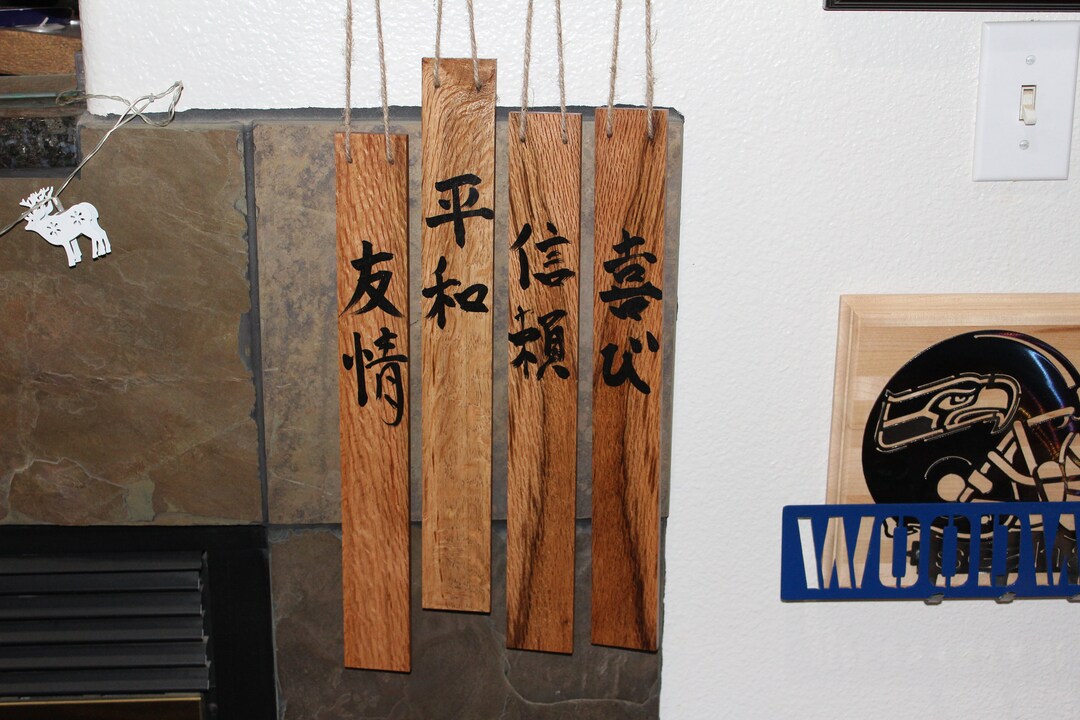 友情
平和
信頼
喜び
WOODW